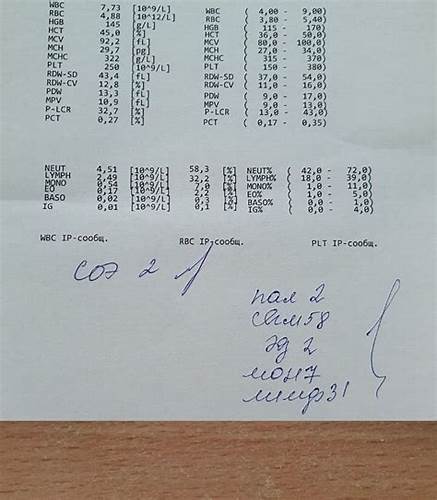 WBC 7,73 [10^9/L] WBC ( 4,00 - 9,00)
RBC 4,88 [10^12/L] RBC ( 3,80 - 5,40)
HGB 145 [g/L] HGB ( 115 - 170)
HCT 45,0 [%] HCT ( 36,0 - 50,0)
MCV 92,2 [fL] MCV ( 80,0 - 100,0)
MCH 29,7 [pg] MCH ( 27,0 - 34,0)
MCHC 322 [g/L] MCHC ( 315 - 370)
PLT 250 [10^9/L] PLT ( 150 - 380)
RDW-SD 43,4 [fL] RDW-SD ( 37,0 - 54,0)
RDW-CV 12,8 [%] RDW-CV ( 11,0 - 16,0)
PDW 13,3 [fL] PDW ( 9,0 - 17,0)
MPV 10,9 [fL] MPV ( 9,0 - 13,0)
P-LCR 32,7 [%] P-LCR ( 13,0 - 43,0)
PCT 0,27 [%] PCT ( 0,17 - 0,35)
NEUT 4,51 [10^9/L] 58,3 [%] NEUT% ( 42,0 - 72,0)
LYMPH 2,49 [10^9/L] 32,2 [%] LYMPH% ( 18,0 - 39,0)
MONO 0,54 [10^9/L] 7,0 [%] MONO% ( 1,0 - 11,0)
EO 0,17 [10^9/L] 2,2 [%] EO% ( 1,0 - 5,0)
BASO 0,02 [10^9/L] 0,3 [%] BASO% ( 0,0 - 1,0)
IG 0,01 [10^9/L] 0,1 [%] IG% ( 0,0 - 4,0)
WBC IP-сообщ. RBC IP-сообщ. PLT IP-сообщ.
соэ 2
пал 2
сегм 58
эо 2
мон 7
лимф 31